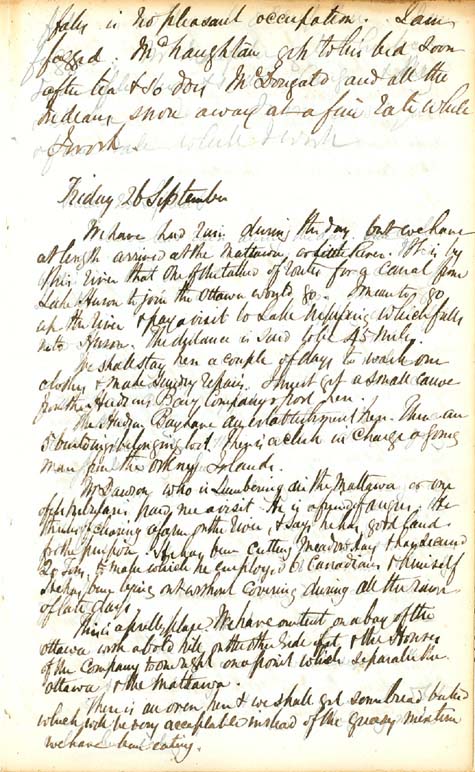 falls is no pleasant occupation. I am
fagged. McNaughtan gets to his bed soon
after tea & so does McDougald and all the
Indians, snore away at a fine rate while
I work.
Friday 26 September
We have had rain during the day but we have
at length arrived at the Mattawa, or Little River. It is by
this river that one of the talked of routes for a Canal from
Lake Huron to join the Ottawa would go. I mean to go
up the River & pay a visit to Lake Nipissing which falls
into Huron. The distance is said to be 45 miles.
We shall stay here a couple of days to wash our
clothes & make sundry repairs. I must get a small canoe
from the Hudsons Bay Company's post here.
The Hudson Bay have an establishment here. There are
5 buildings belonging to it. There is a clerk in charge a young
man from the Orkney Islands.
Mr Dawson who is Lumbering on the Mattawa or one
of its branches paid me a visit. He is a friend of
thinks of clearing a farm on the River & says he has good land
for the purpose. He has been cutting meadow hay & has secured
20 Tons, to make which he employs 6 Canadians & himself
& they have been lying out without covering during all the rain
of late days.
This is a pretty place. We have our tent on a bay of the
Ottawa with a bold hill on the other side of it & the Houses
of the Company to our right on a point which separates the
Ottawa & the Mattawa.
There is an oven here & we shall get some bread baked
which will be very acceptable instead of the greasy mixture
we have been eating.